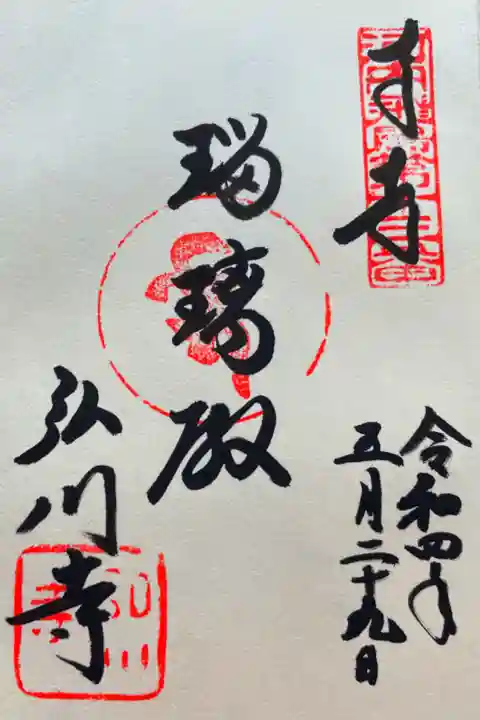 令和四年
五月二十九日
瑠璃殿
弘川寺
弘川寺